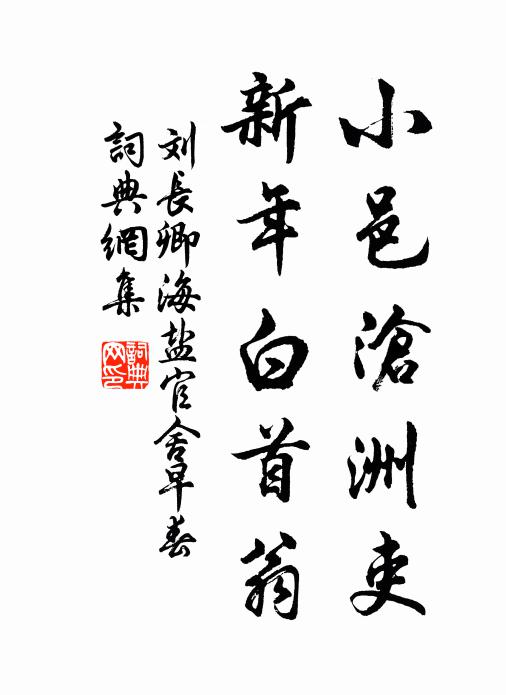 小邑滄洲吏
新年白首翁
刘長卿海盐官舍早春
詞典網集
詞典网印